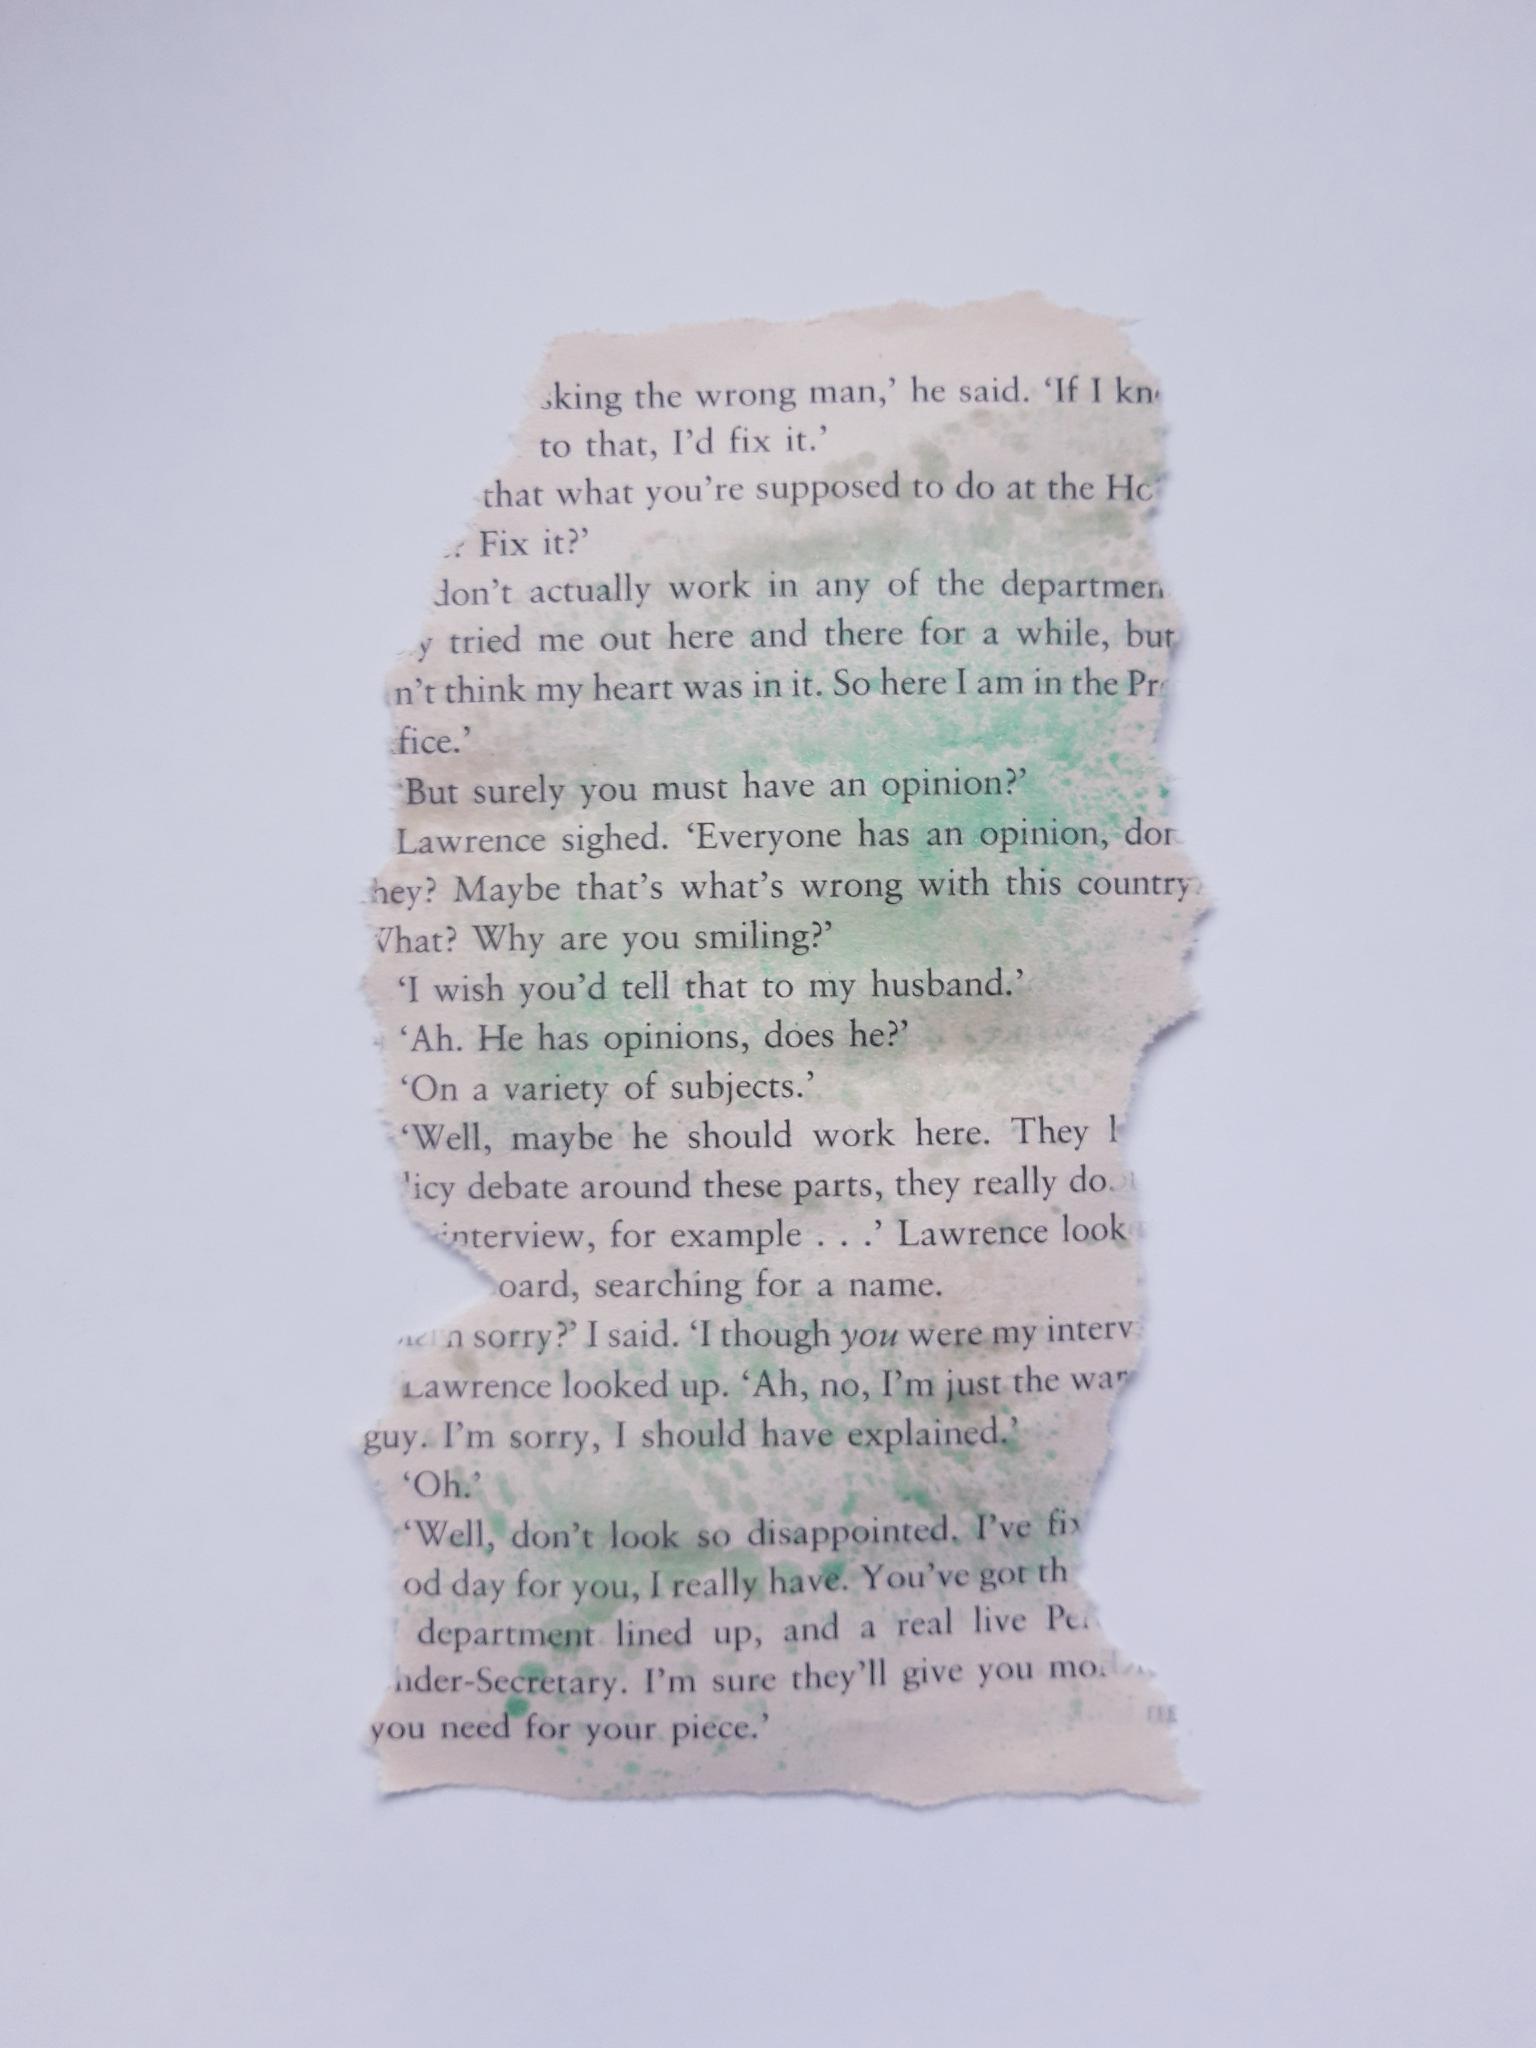 king the wrong man,’ he said. ‘If I
to that, I’d fix it.’
that what you’re supposed to do at the
Fix it?’
don’t actually work in any of the
tried me out here and there for a while, but
n’t think my heart was in it. So here I am in the
fice.’
‘But surely you must have an opinion?’
Lawrence sighed. ‘Everyone has an opinion,
hey? Maybe that’s what’s wrong with this country
What? Why are you smiling?’
‘I wish you’d tell that to my husband.’
‘Ah. He has opinions, does he?’
‘On a variety of subjects.’
‘Well, maybe he should work here. They
icy debate around these parts, they really do.
interview, for example . . .’ Lawrence look
oard, searching for a name.
sorry?’ I said. ‘I though you were my interv
Lawrence looked up. ‘Ah, no, I’m just the
guy. I’m sorry, I should have explained.’
‘Oh.’
‘Well, don’t look so disappointed. I’ve
od day for you, I really have. You’ve got th
department lined up, and a real live
nder-Secretary. I’m sure they’ll give you
you need for your piece.’